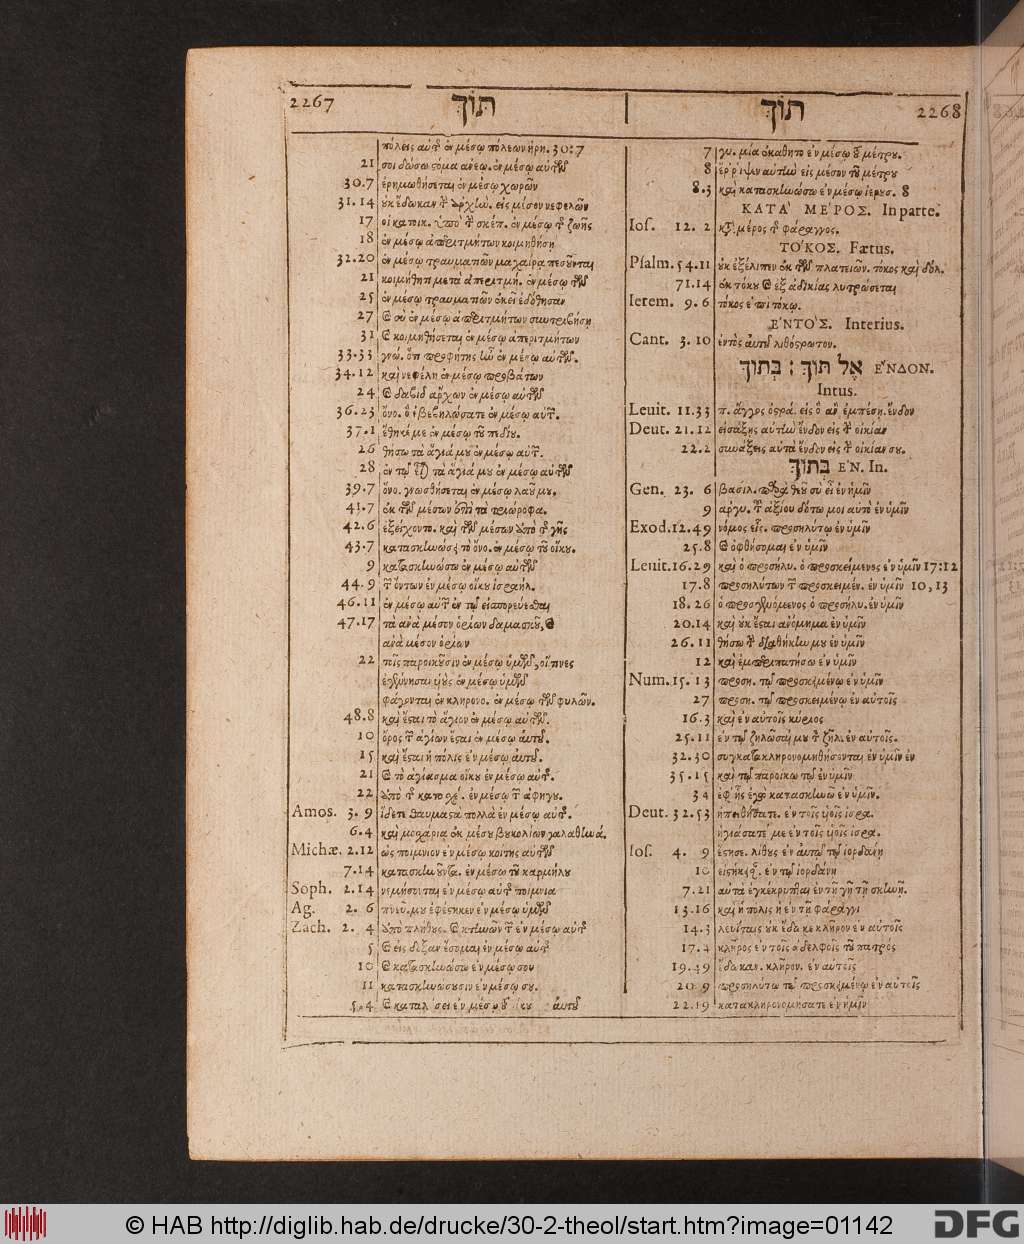 2267 תוֹךְ
תוֹךְ 2268
πόλεις αὐτῶν ἐν μέσῳ πόλεων ἠρη. 30:7
21 σοι δώσω στόμα ἀνεῳ. ἐν μέσῳ αὐτῶν
30.7 ἐρημωθήσεται ἐν μέσῳ χωρῶν
31.14 οὐκ ἔδωκαν τ̀ ἀρχὴν. εἰς μέσον νεφελῶν
17 οἱ κατοικ. ὑπὸ τ̀ σκέπ. ἐν μέσῳ τ̃ ζωῆς
18 ἐν μέσῳ ἀπεριτμήτων κοιμηθήσῃ
32.20 ἐν μέσῳ τραυματιῶν μαχαίρᾳ πεσοῦνται
21 κοιμήθητι μετὰ ἀπεριτμή. ἐν μέσῳ τῶν
25 ἐν μέσῳ τραυματιῶν ἐκεῖ ἐδόθησαν
27 καὶ σὺ ἐν μέσῳ ἀπεριτμήτων συντριβήσῃ
31 καὶ κοιμηθήσεται ἐν μέσῳ ἀπεριτμήτων
33.33 γνώ. ὅτι προφήτης ἦν ἐν μέσῳ αὐτῶν.
34.12 καὶ νεφέλη ἐν μέσῳ προβάτων
24 καὶ δαβὶδ ἄρχων ἐν μέσῳ αὐτῶν
36.23 ὄνο. ὃ ἐβεβηλώσατε ἐν μέσῳ αὐτῶν.
37.1 ἔθηκέ με ἐν μέσῳ τοῦ πεδίου.
26 θήσω τὰ ἅγιά μου ἐν μέσῳ αὐτῶν.
28 ἐν τῷ εἶναι τὰ ἅγιά μου ἐν μέσῳ αὐτῶν
39.7 ὄνο. γνωσθήσεται ἐν μέσῳ λαοῦ μου.
41.7 ἐκ τῶν μέσων ἐπὶ τὰ τριώροφα.
42.6 ἐξείχοντο. καὶ τῶν μέσων ἀπὸ τ̃ γῆς
43.7 κατασκηνώσει τὸ ὄνο. ἐν μέσῳ τοῦ οἴκου.
9 κατασκηνώσω ἐν μέσῳ αὐτῶν
44.9 τῶν ὄντων ἐν μέσῳ οἴκου ἰσραήλ.
46.11 ἐν μέσῳ αὐτῶν ἐν τῷ εἰσπορεύεσθαι
47.17 τὰ ἀνὰ μέσον ὁρίων δαμασκοῦ, καὶ
ἀνὰ μέσον ὁρίων
22 τοῖς παροικοῦσιν ἐν μέσῳ ὑμῶν, οἵτινες
ἐγέννησαν υἱοὺς ἐν μέσῳ ὑμῶν
φάγονται ἐν κληρονο. ἐν μέσῳ τῶν φυλῶν.
48.8 καὶ ἔσται τὸ ἅγιον ἐν μέσῳ αὐτῶν.
10 ὄρος τῶν ἁγίων ἔσται ἐν μέσῳ αὐτοῦ.
15 καὶ ἔσται ἡ πόλις ἐν μέσῳ αὐτοῦ.
21 καὶ τὸ ἁγίασμα οἴκου ἐν μέσῳ αὐτῶν.
22 ἀπὸ τ̃ κατοχέ. ἐν μέσῳ τῶν ἀφηγου.
Amos. 3. 9 ἴδετε θαυμαστὰ πολλὰ ἐν μέσῳ αὐτῶν.
6.4 καὶ μοσχάρια ἐκ μέσου βουκολίων γαλαθηνά.
Michæ. 2.12 ὡς ποίμνιον ἐν μέσῳ κοίτης αὐτῶν
7.14 κατασκηνοῦντας. ἐν μέσῳ τοῦ καρμήλου
Soph. 2.14 νεμήσονται ἐν μέσῳ αὐτῶν ποίμνια
Ag. 2. 6 πνεῦ. μου ἐφέστηκεν ἐν μέσῳ ὑμῶν
Zach. 2. 4 ἀπὸ πλήθους. καὶ κτηνῶν τῶν ἐν μέσῳ αὐτῶν
5 καὶ εἰς δόξαν ἔσομαι ἐν μέσῳ αὐτῶν
10 καὶ κατασκηνώσω ἐν μέσῳ σου
11 κατασκηνώσουσιν ἐν μέσῳ σου.
5.4 καὶ καταλ σει ἐν μέσῳ τοῦ ἴκου αὐτοῦ
7 γυ. μία ἐκάθητο ἐν μέσῳ τοῦ μέτρου.
8 ἔρριψεν αὐτὴν εἰς μέσον τοῦ μέτρου
8.3 καὶ κατασκηνώσω ἐν μέσῳ ἱερουσ. 8
ΚΑΤΑ' ΜΕ'ΡΟΣ. In parte.
Ios. 12. 2 κατὰ μέρος τ̃ φάραγγος.
ΤΟ'ΚΟΣ. Fœtus.
Psalm. 54.11 οὐκ ἐξέλιπεν ἐκ τῶν πλατειῶν. τόκος καὶ δόλ.
71.14 ἐκ τόκου καὶ ἐξ ἀδικίας λυτρώσεται
Ierem. 9. 6 τόκος ἐπὶ τόκῳ.
Ε'ΝΤΟ'Σ. Interius.
Cant. 3. 10 ἐντὸς αὐτοῦ λιθόστρωτον.
אֶל תּוֹךְ : בְּתוֹךְ Ε'ΝΔΟΝ.
Intus.
Leuit. 11.33 π. ἄγγος ὀστρά. εἰς ὃ ἂν ἐμπέσῃ. ἔνδον
Deut. 21.12 εἰσάξῃς αὐτὴν ἔνδον εἰς τ̀ οἰκίαν
22.2 συνάξεις αὐτὰ ἔνδον εἰς τ̀ οἰκίαν σου.
בְּתוֹךְ Ε'Ν. In.
Gen. 23. 6 βασιλ. παρὰ θεοῦ σὺ εἶ ἐν ἡμῖν
9 ἀργυ. τοῦ ἀξίου δότω μοι αὐτὸ ἐν ὑμῖν
Exod. 12.49 νόμος εἷς. προσηλύτῳ ἐν ὑμῖν
25.8 καὶ ὀφθήσομαι ἐν ὑμῖν
Leuit. 16.29 καὶ ὁ προσήλυ. ὁ προσκείμενος ἐν ὑμῖν 17:12
17.8 προσηλύτων τῶν προσκειμέν. ἐν ὑμῖν 10, 13
18.26 ὁ προσγενόμενος ὁ προσήλυ. ἐν ὑμῖν
20.14 καὶ οὐκ ἔσται ἀνόμημα ἐν ὑμῖν
26.11 θήσω τ̀ διαθήκην μου ἐν ὑμῖν
12 καὶ ἐμπεριπατήσω ἐν ὑμῖν
Num. 15. 13 προση. τῷ προσκειμένῳ ἐν ὑμῖν
27 προση. τῷ προσκειμένῳ ἐν αὐτοῖς
16.3 καὶ ἐν αὐτοῖς κύριος
25.11 ἐν τῷ ζηλῶσαί μου τ̀ ζῆλ. ἐν αὐτοῖς.
32.30 συγκατακληρονομηθήσονται ἐν ὑμῖν ἐν
35.15 καὶ τῷ παροίκῳ τῷ ἐν ὑμῖν
34 ἐφ' ἧς ἐγὼ κατασκηνῶ ἐν ὑμῖν.
Deut. 32.53 ἠπειθήσατε. ἐν τοῖς υἱοῖς ἰσρα.
ἡγιάσατέ με ἐν τοῖς υἱοῖς ἰσρα.
Ios. 4. 9 ἔστησε. λίθους ἐν αὐτῷ τῷ ἰορδάνῃ
10 εἱστήκεισ. ἐν τῷ ἰορδάνῃ
7.21 αὐτὰ ἐγκέκρυπται ἐν τῇ γῇ τῇ σκηνῇ.
13.16 καὶ ἡ πόλις ἡ ἐν τῇ φάραγγι
14.3 λευίταις οὐκ ἔδωκε κλῆρον ἐν αὐτοῖς
17.4 κλῆρος ἐν τοῖς ἀδελφοῖς τοῦ πατρός
19.49 ἔδωκαν. κλῆρον. ἐν αὐτοῖς
20.9 προσηλύτῳ τῷ προσκειμένῳ ἐν αὐτοῖς
22.19 κατακληρονομήσατε ἐν ἡμῖν
© HAB http://diglib.hab.de/drucke/30-2-theol/start.htm?image=01142
DFG